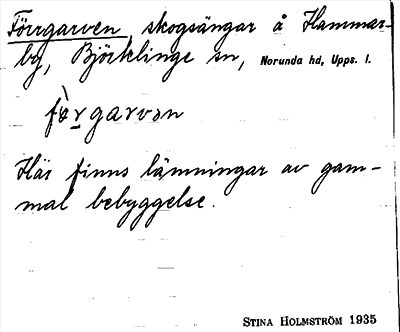 Förrgarven, skogsängar å Hammar-
by, Björklinge sn, Norunda hd, Upps. l.
fø̀r̲garvən
Här finns lämningar av gam-
mal bebyggelse.
STINA HOLMSTRÖM 1935